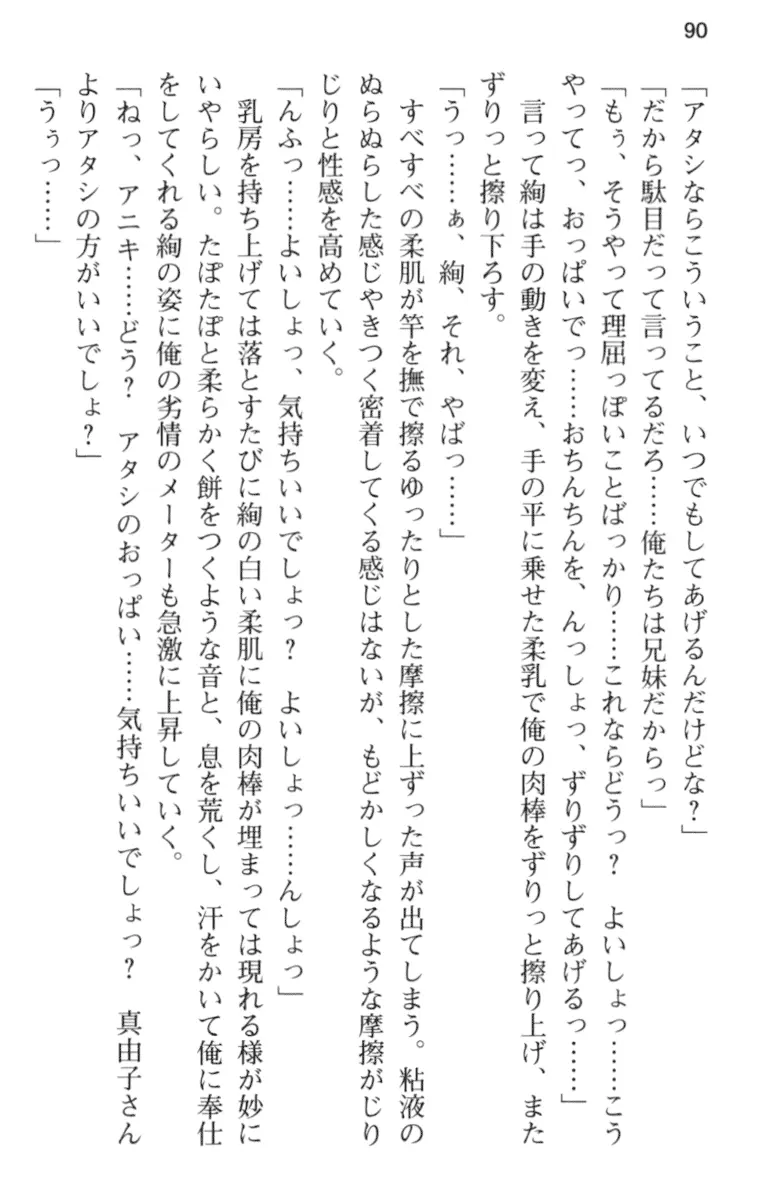 90
「アタシならこういうこと、いつでもしてあげるんだけどな？」
「だから駄目だって言ってるだろ……俺たちは兄妹だからっ」
「もぅ、そうやって理屈っぽいことばっかり……これならどうっ？　よいしょっ……こう
やってっ、おっぱいでっ……おちんちんを、んっしょっ、ずりずりしてあげるっ……」
　言って絢は手の動きを変え、手の平に乗せた柔乳で俺の肉棒をずりっと擦り上げ、また
ずりっと擦り下ろす。
「うっ……ぁ、絢、それ、やばっ……」
　すべすべの柔肌が竿を撫で擦るゆったりとした摩擦に上ずった声が出てしまう。粘液の
ぬらぬらした感じやきつく密着してくる感じはないが、もどかしくなるような摩擦がじり
じりと性感を高めていく。
「んふっ……よいしょっ、気持ちいいでしょっ？　よいしょっ……んしょっ」
　乳房を持ち上げては落とすたびに絢の白い柔肌に俺の肉棒が埋まっては現れる様が妙に
いやらしい。たぽたぽと柔らかく餅をつくような音と、息を荒くし、汗をかいて俺に奉仕
をしてくれる絢の姿に俺の劣情のメーターも急激に上昇していく。
「ねっ、アニキ……どう？　アタシのおっぱい……気持ちいいでしょっ？　真由子さん
よりアタシの方がいいでしょ？」
「うぅっ……」